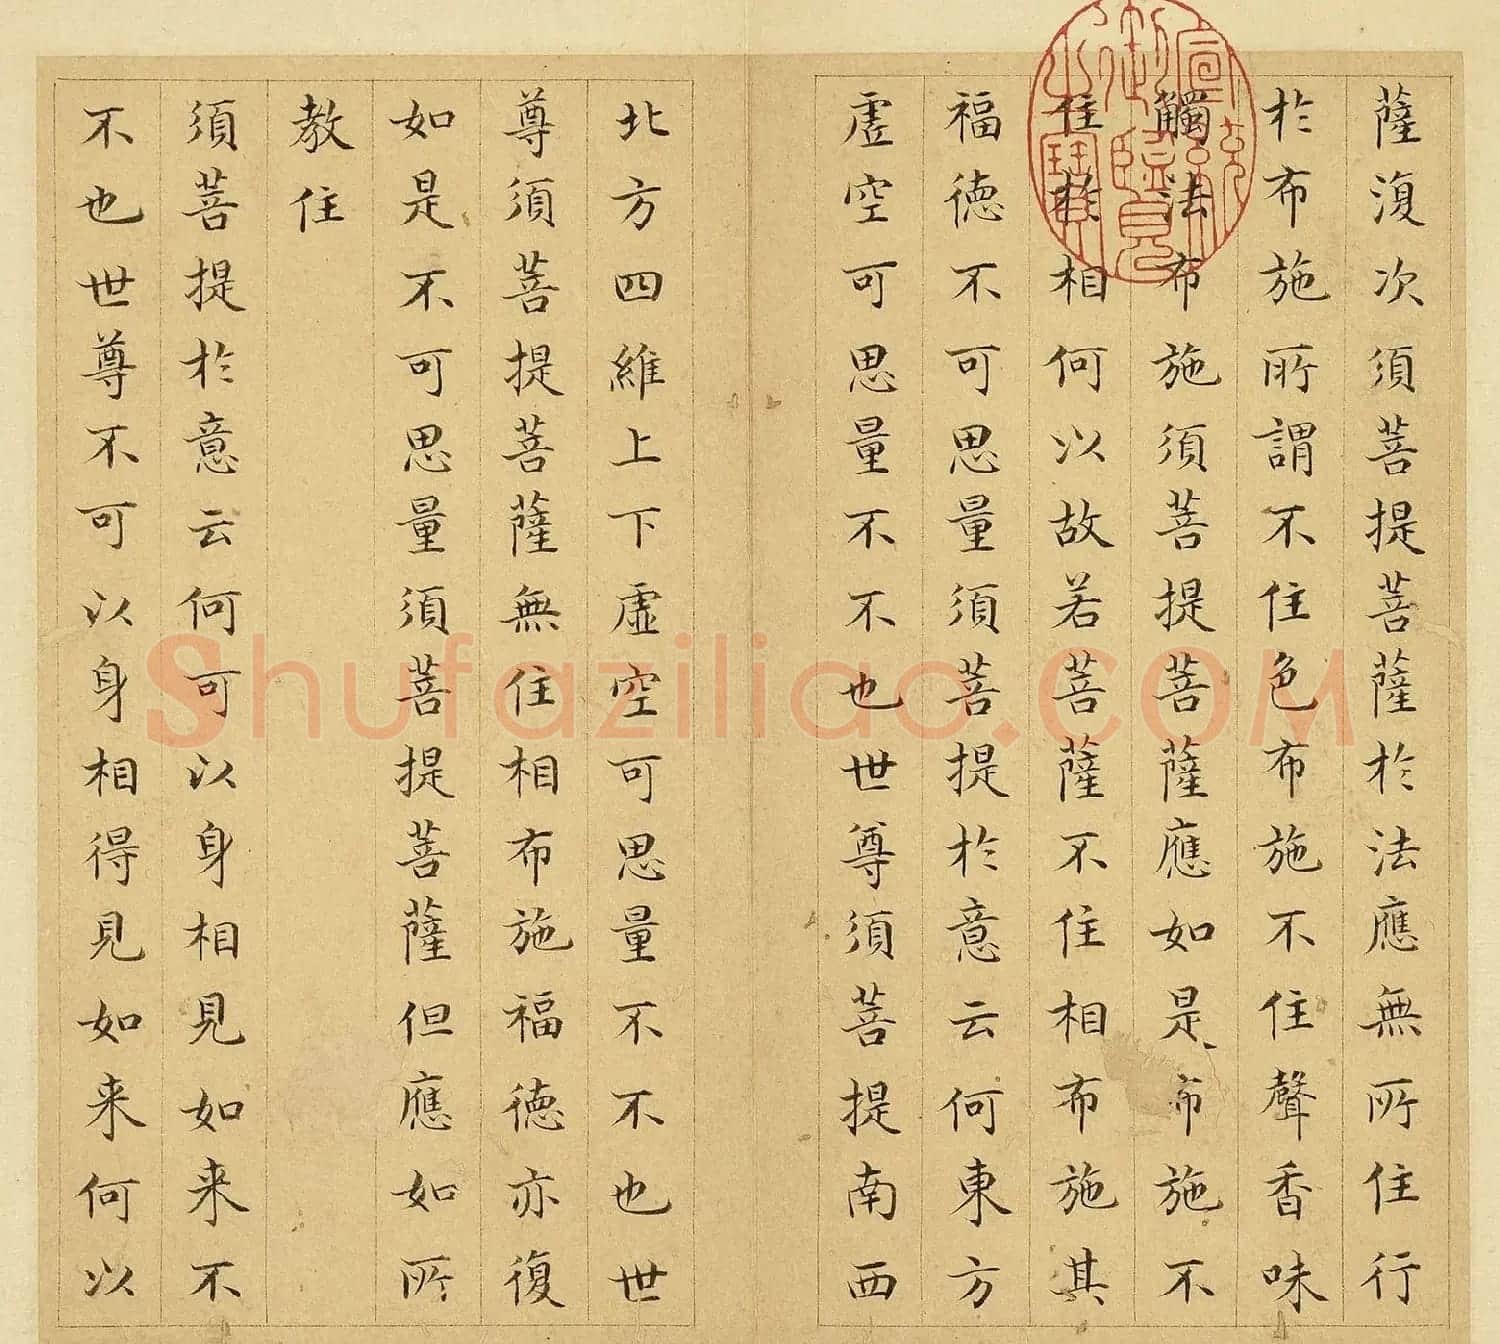 薩復次須菩提菩薩於法應無所住行
於布施所謂不住色布施不住聲香味
觸法布施須菩提菩薩應如是布施不
住於相何以故若菩薩不住相布施其
福德不可思量須菩提於意云何東方
虛空可思量不不也世尊須菩提南西
北方四維上下虛空可思量不不也世
尊須菩提菩薩無住相布施福德亦復
如是不可思量須菩提菩薩但應如所
教住
須菩提於意云何可以身相見如来不
不也世尊不可以身相得見如来何以
宣統御覽之寶
Shufaziliao.COM